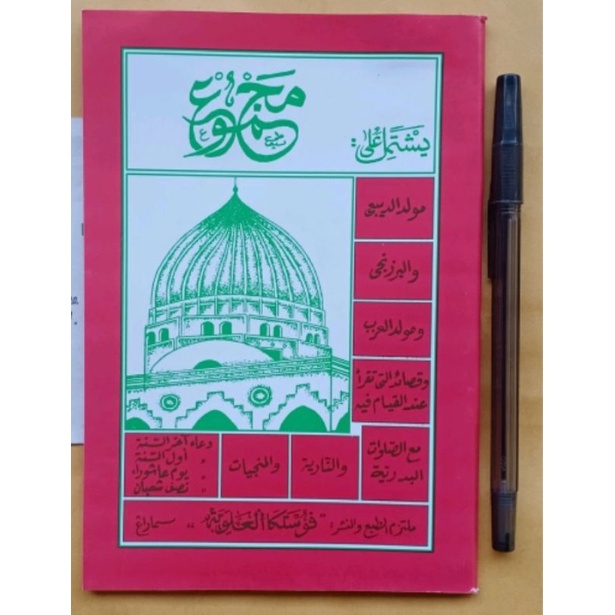 مجموع
يشتمل على:
مولد الديبعي
والبرزنجى
ومولد العزب
وقصائد التى تقرأ
عند القيام فيه
مع الصلوات
البدرية
والنارية
والمنجيات
دعاء آخر السنة
" أول السنة
" يوم عاشوراء
" نصف شعبان
ملتزم الطبع والنشر: "فوستكا العلوية" سماراغ